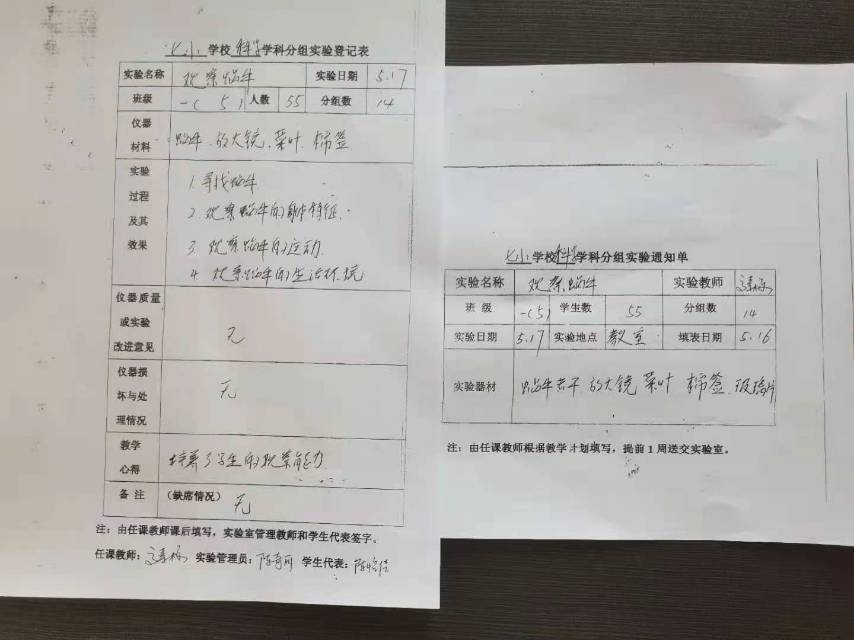 七小学校科学学科分组实验登记表
实验名称 观察蜗牛 实验日期 5.17
班级 一(5) 人数 55 分组数 14
仪器材料 蜗牛、放大镜、菜叶、棉签
实验过程及其效果
1. 寻找蜗牛
2. 观察蜗牛的身体特征.
3. 观察蜗牛的运动.
4. 观察蜗牛的生活环境
仪器质量或实验改进意见 无
仪器损坏与处理情况 无
教学心得 培养了学生的观察能力
备注 (缺席情况) 无
注:由任课教师课后填写,实验室管理教师和学生代表签字。
任课教师: 实验管理员: 学生代表:
七小学校科学学科分组实验通知单
实验名称 观察蜗牛 实验教师
班级 一(5) 学生数 55 分组数 14
实验日期 5.17 实验地点 教室 填表日期 5.16
实验器材 蜗牛若干 放大镜 菜叶 棉签 玻璃片
注:由任课教师根据教学计划填写,提前1周送交实验室。